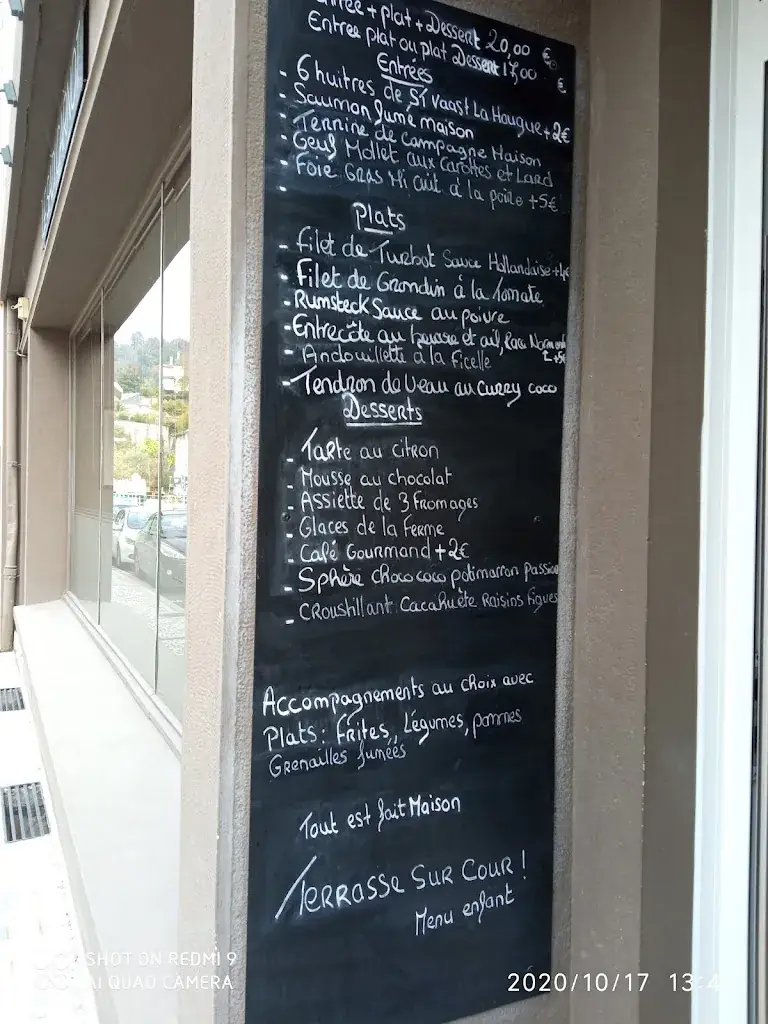 + plat + Dessert 20,00 €
Entree plat ou plat Dessert 17,00 €
Entrées
- 6 huitres de St Vaast La Hougue +2€
- Saumon fumé maison
- Terrine de Campagne Maison
- Oeuf Mollet aux Carottes et Lard
- Foie Gras Mi cuit à la poire +5€
-
Plats
- Filet de Turbot Sauce Hollandaise +4€
- Filet de Grondin à la Tomate
- Rumsteck Sauce au poivre
- Entrecôte au beurre et ail, Race
+5€
- Andouillette à la Ficelle
- Tendron de Veau au Curry coco
Desserts
- Tarte au citron
- Mousse au chocolat
- Assiette de 3 Fromages
- Glaces de la Ferme
- Café Gourmand +2€
- Sphère choco coco potimarron passion
- Croustillant Cacahuète Raisins Figues
Accompagnements au choix avec
Plats : Frites, Légumes, pommes
Grenailles fumées
Tout est fait Maison
Terrasse Sur Cour !
Menu enfant
SHOT ON REDMI 9
AI QUAD CAMERA
2020/10/17 13:4